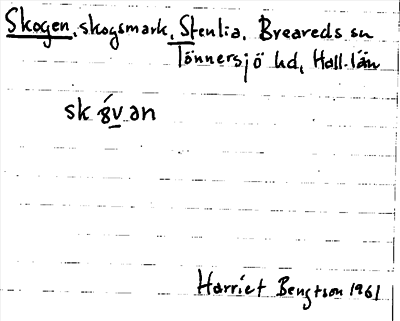 Skogen, skogsmark, Stenlia, Breareds sn
Tönnersjö hd, Hall. län
Harriet Bengtson 1961